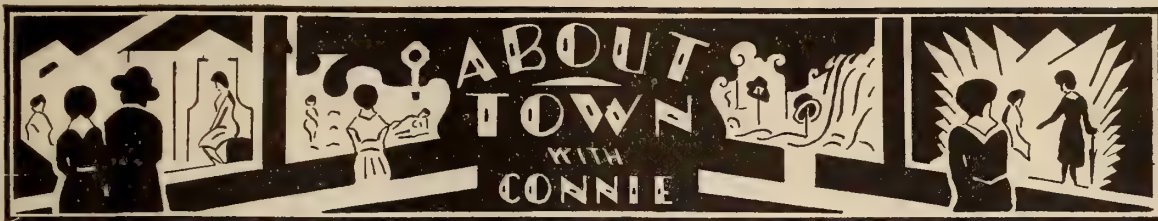 ABOUT
TOWN
WITH
CONNIE